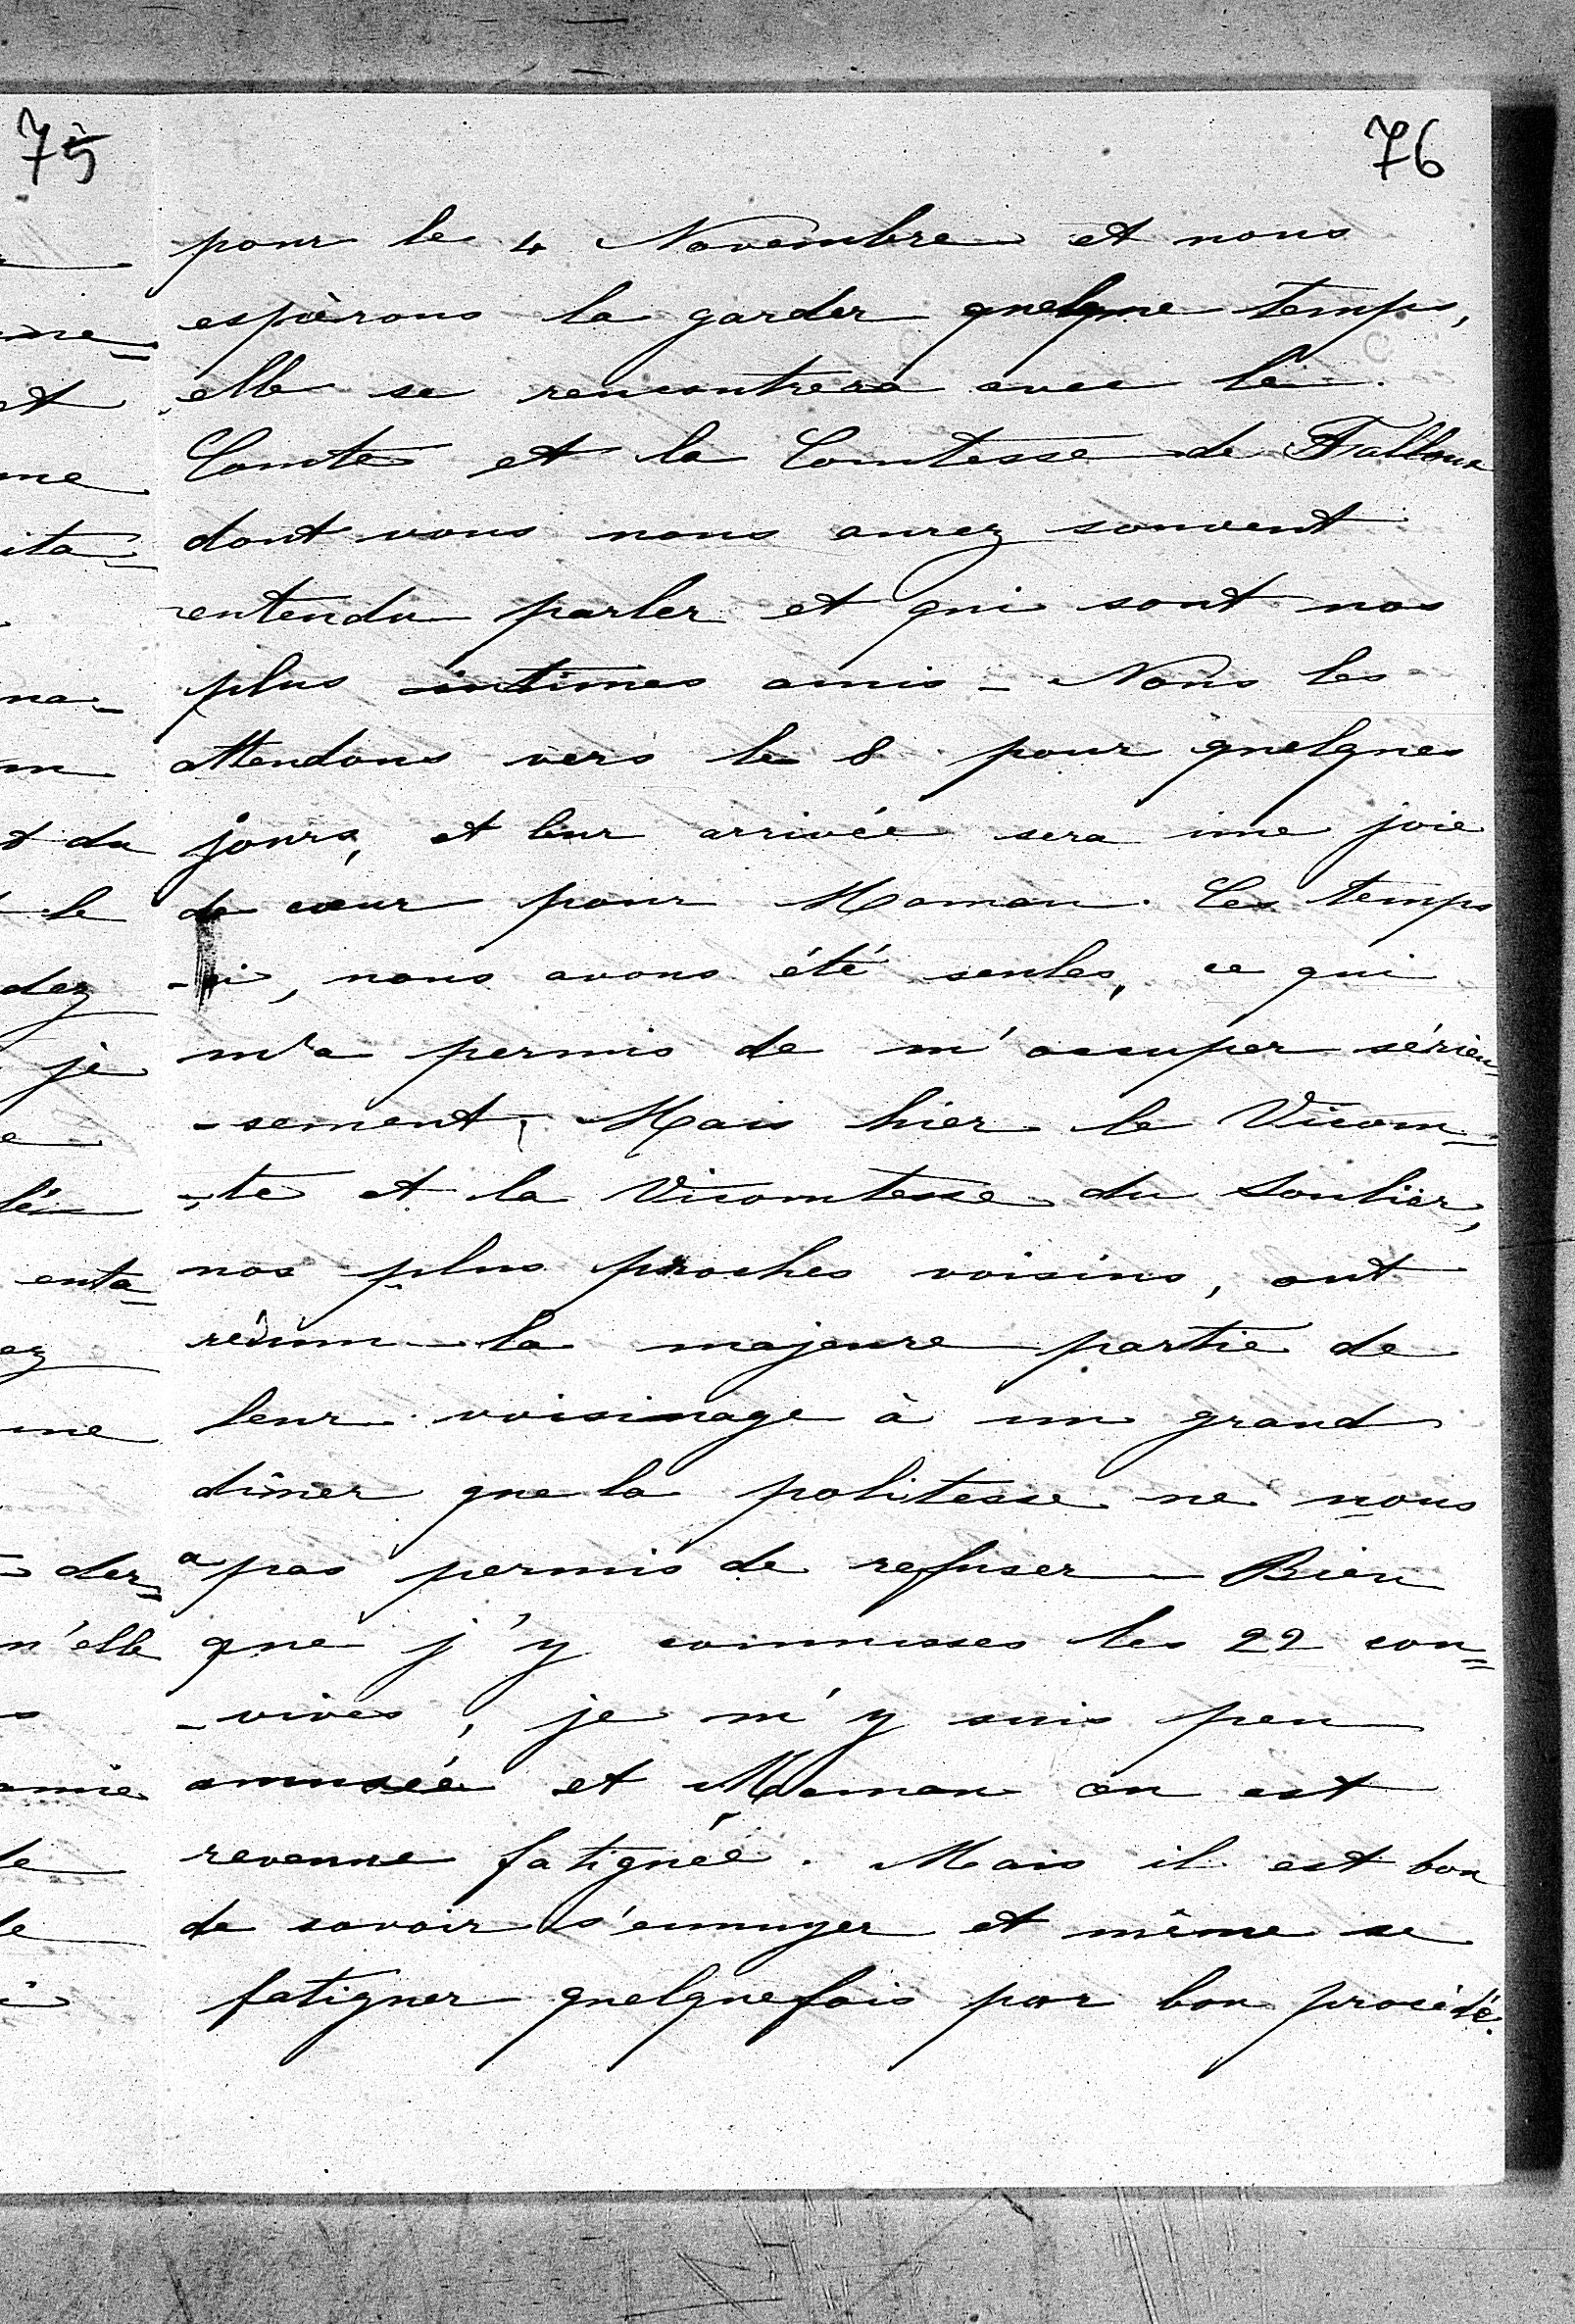 75
76
pour le 4 Novembre et nous
espérons la garder quelque temps,
elle se rencontrera avec le
Comte et la Comtesse de Falloux
dont vous nous aurez souvent
entendu parler et qui sont nos
plus intimes amis - Nous les
attendons vers le 8 pour quelques
jours, et leur arrivée sera une joie
de cœur pour Maman. Ces temps
-ci, nous avons été seules, ce qui
m'a permis de m'occuper sérieu-
-sement. Mais hier le Vicom=
-te et la Vicomtesse du Soulier,
nos plus proches voisins, ont
réuni la majeure partie de
leur voisinage à un grand
dîner que la politesse ne nous
a pas permis de refuser - Bien
que j'y connusses les 22 con=
-vives, je m'y suis peu
amusée et Maman en est
revenue fatiguée. Mais il est bon
de savoir s'ennuyer et même se
fatiguer quelquefois par bon procédé.